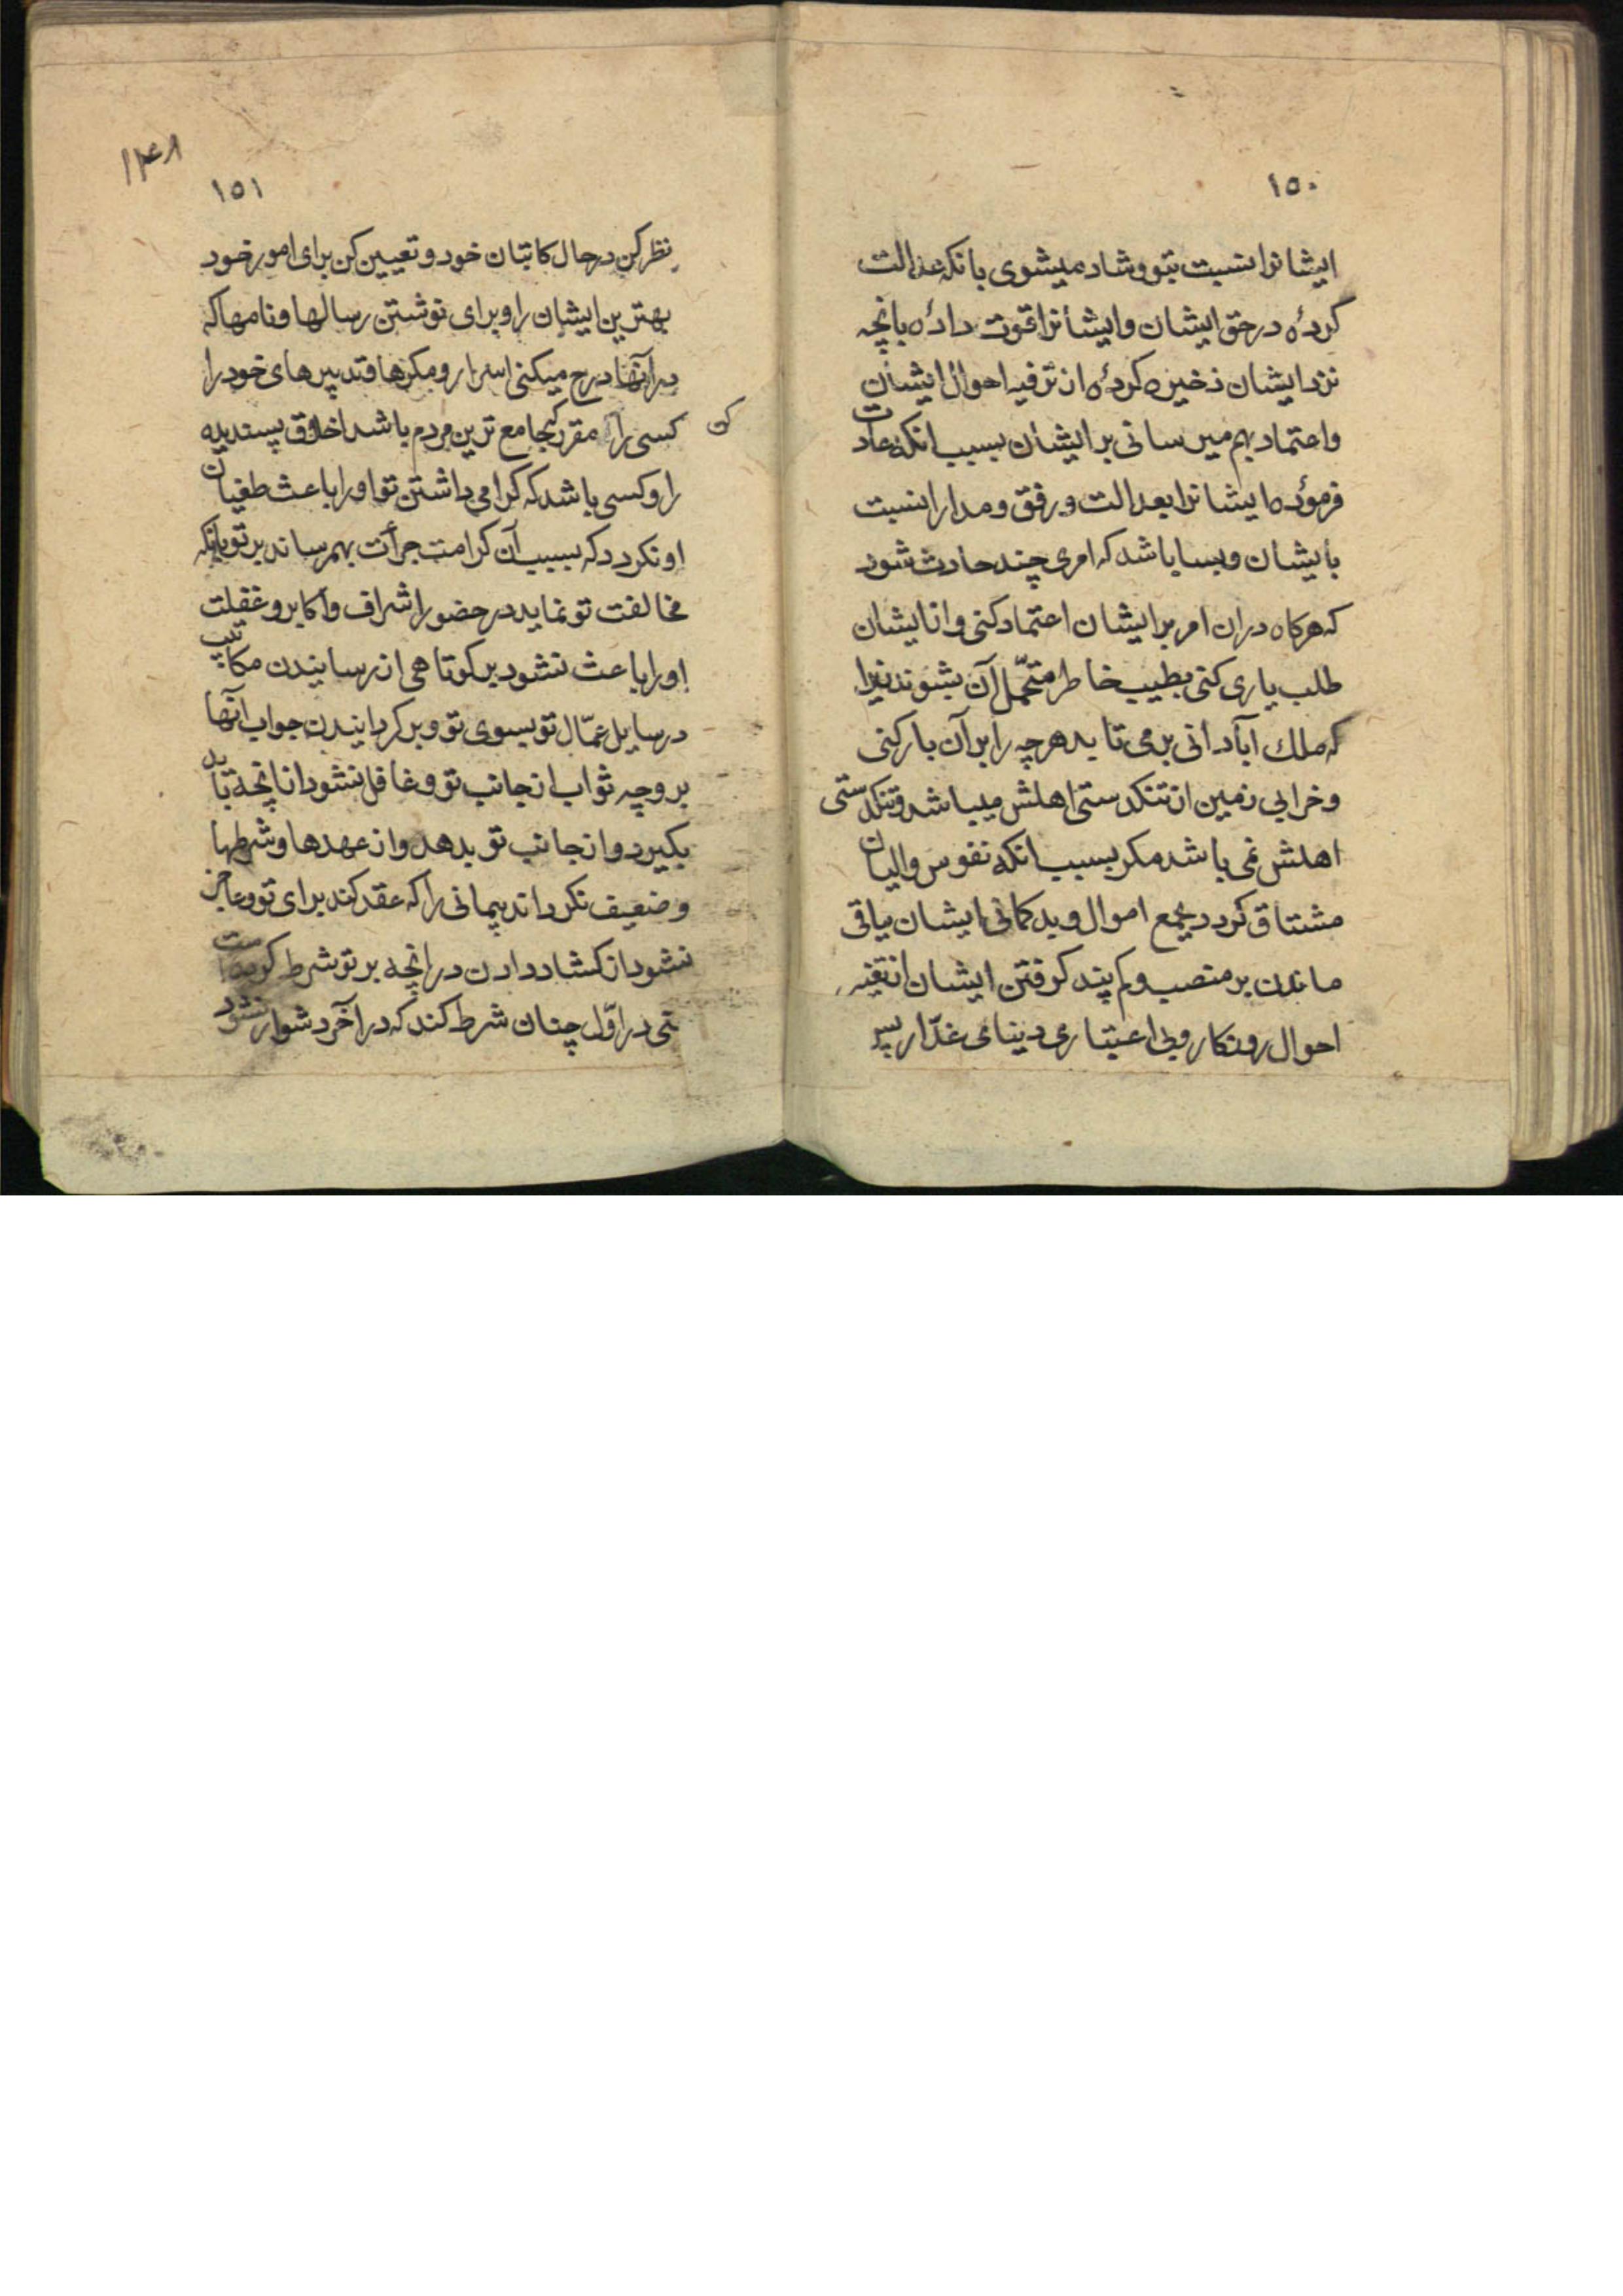 ۱۵۰
ایشانرا نسبت بتو و شاد میشوی بانکه عدالت
کردهٔ در حق ایشان و ایشانرا قوت دادهٔ بانچه
نزد ایشان ذخیره کردهٔ از ترفیه احوال ایشان
و اعتماد بهم میرسانی بر ایشان بسبب انکه عادت
فرمودهٔ ایشانرا بعدالت و رفق و مدارا نسبت
بایشان و بسا باشد که امری چند حادث شود
که هرکاه دران امر بر ایشان اعتماد کنی و از ایشان
طلب یاری کنی بطیب خاطر متحمّل آن بشوند زیرا
که ملك آبادانی برمی تابد هرچه را بر آن بار کنی
و خرابی زمین از تنکدستی اهلش میباشد و تنکدستی
اهلش نمی باشد مکر بسبب انکه نفوس والیان
مشتاق کردد بجمع اموال و بد کمانی ایشان بباقی
ماندن بر منصب و کم پند کرفتن ایشان از تغیّر
احوال روزکار و بی اعتباری دینای غدّار پس
۱۴۸
۱۵۱
نظر کن در حال کاتبان خود و تعیین کن برای امور خود
بهترین ایشان را و برای نوشتن رسالها و نامها که
در آنها درج میکنی اسرار و مکرها و تدبیرهای خود را
کسی را مقرر کن که جامع ترین مردم باشد اخلاق پسندیده
را و کسی باشد که کرامی داشتن تو او را باعث طغیان
او نکردد که بسبب آن کرامت جرأت بهم رساند بر تو بانکه
مخالفت تو نماید در حضور اشراف و اکابر و غفلت
او را باعث نشود بر کوتاهی از رسانیدن مکاتیب
و رسایل عمّال تو بسوی تو و بر کردانیدن جواب آنها
بر وجه ثواب از جانب تو و غافل نشود از انچه باید
بکیرد و از جانب تو بدهد و از عهدها و شرطها
و ضعیف نکرداند پیمانی را که عقد کند برای تو و عاجز
نشود از کشاد دادن در انچه بر تو شرط کرده است
یعنی در اوّل چنان شرط کند که در آخر دشوار نشود